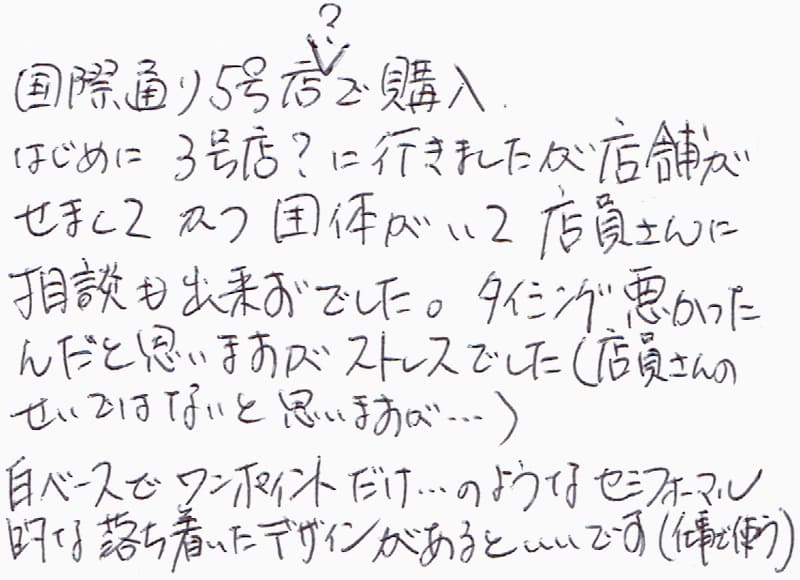 ?
国際通り5号店で購入.
はじめに 3号店?に行きましたが店舗が
せまくて かつ 団体がいて 店員さんに
相談も出来ずでした。タイミング悪かった
んだと思いますが ストレスでした(店員さんの
せいではないと思いますが…)
白ベースで ワンポイントだけ…のような セミフォーマル
的な 落ち着いたデザインがあるといいです(仕事で使う)